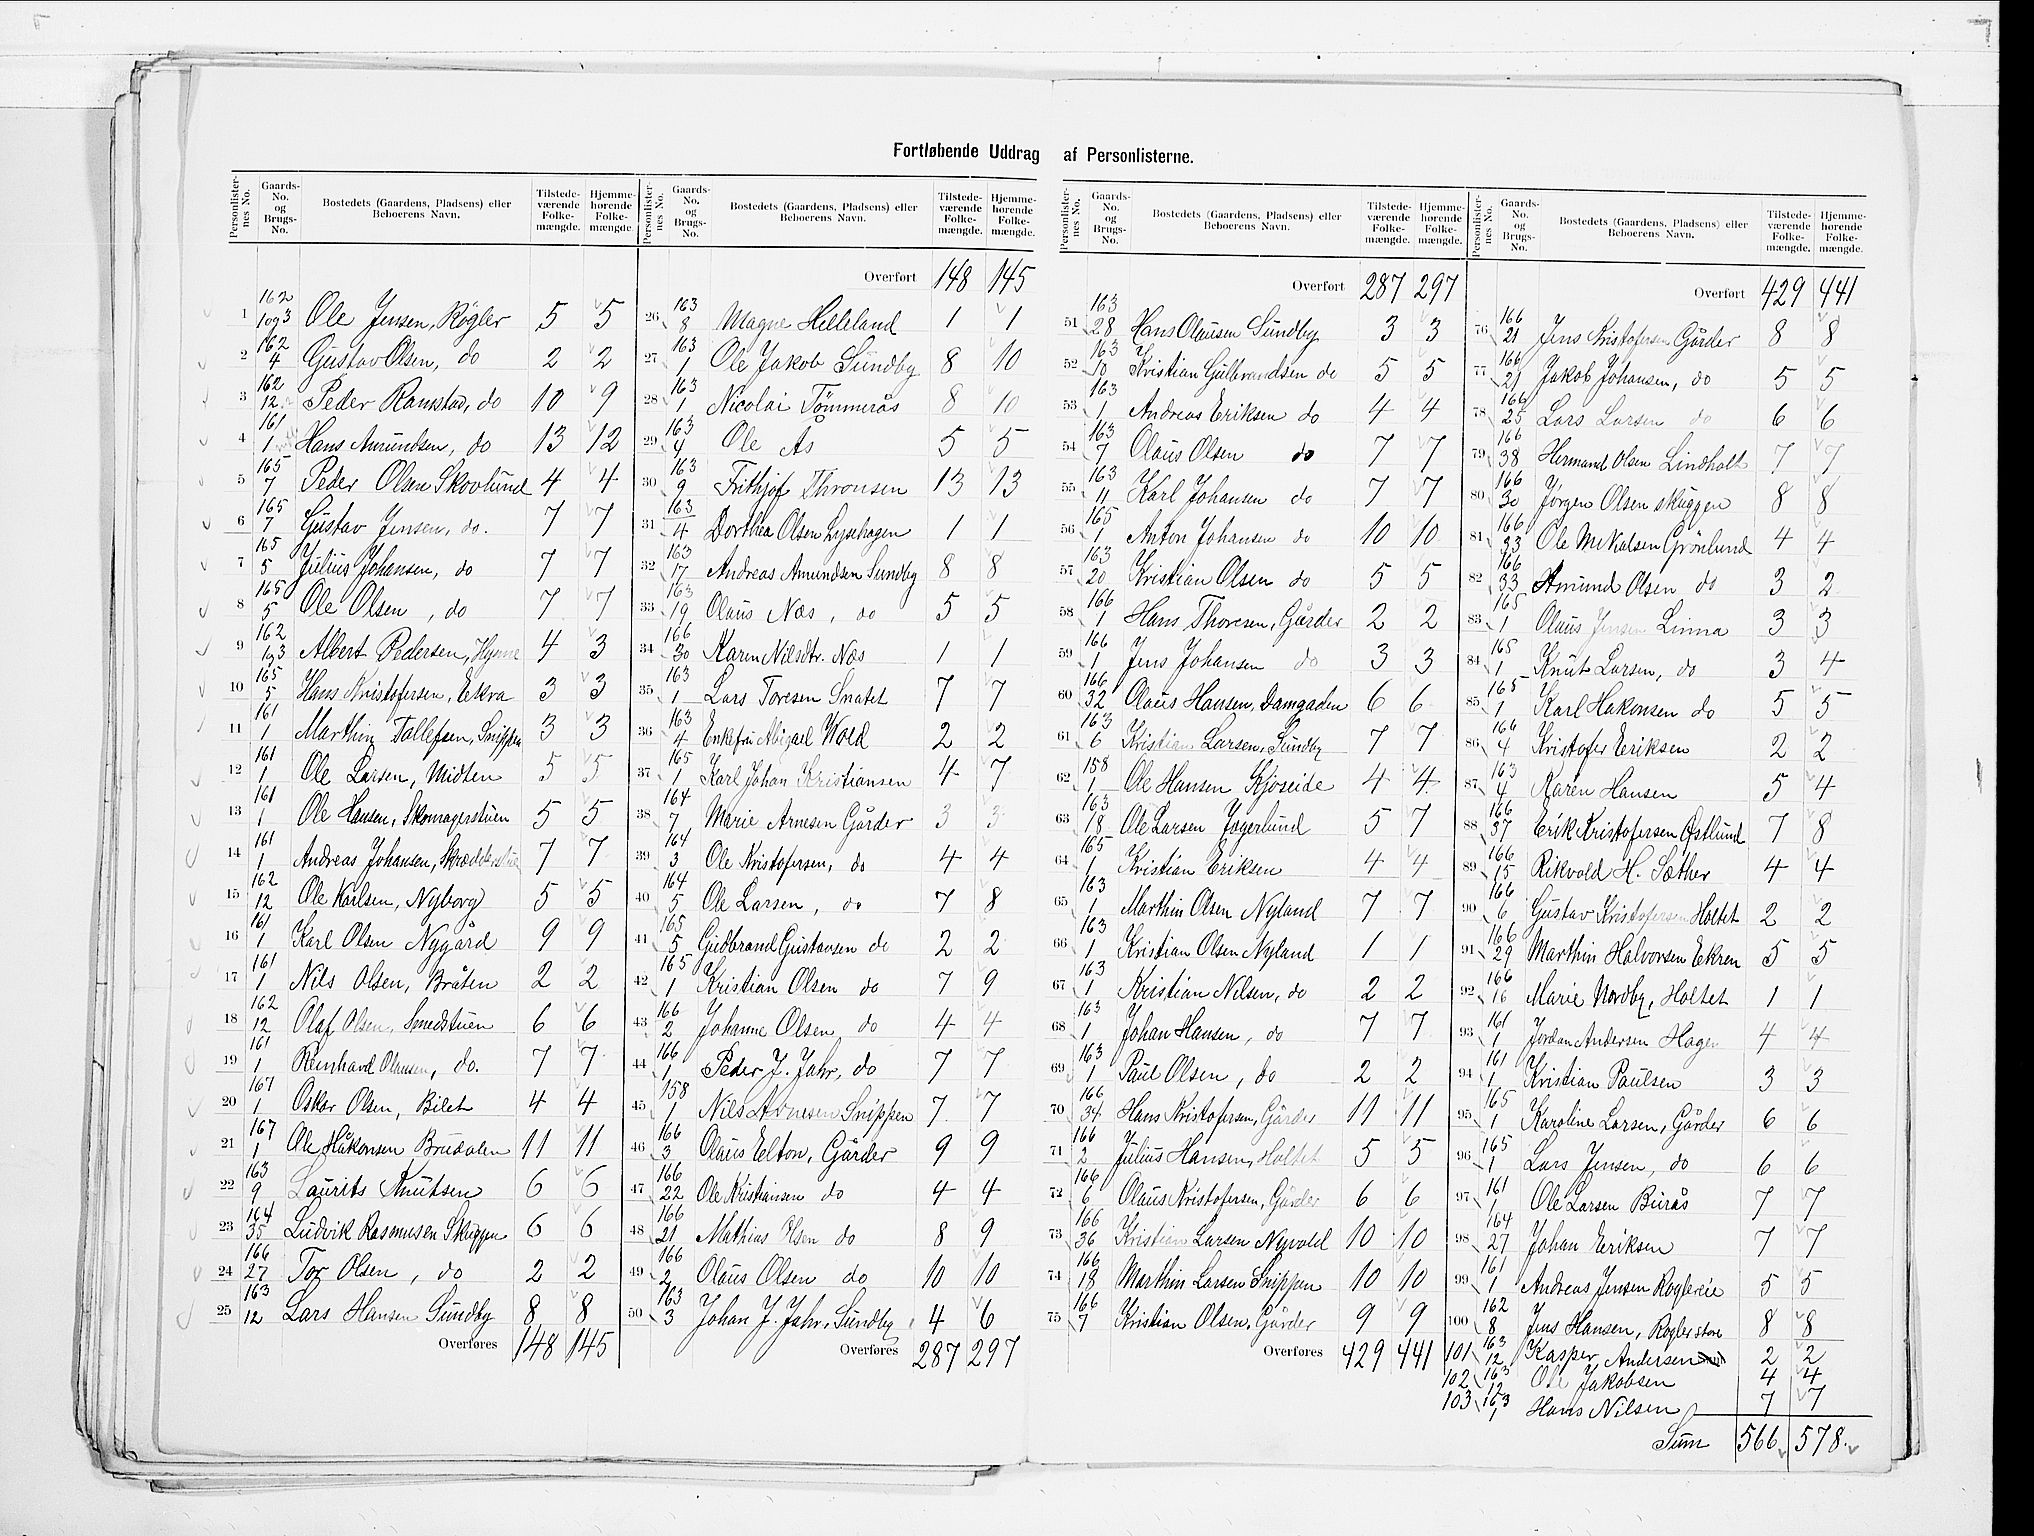 Fortløbende Uddrag af Personlisterne.
Personlisternes No. Gaards-No. og Brugs-No. Bostedets (Gaardens, Pladsens) eller Beboerens Navn. Tilstedeværende Folkemængde. Hjemmehørende Folkemængde.
1 162 1og3 Ole Jensen, Røgler 5 5
2 162 4 Gustav Olsen, do 2 2
3 162 12 Peder Ramstad, do 10 9
4 161 1 Hans Amundsen, do 13 12
5 165 7 Peder Olsen Skovlund 4 4
6 165 7 Gustav Jensen, do. 7 7
7 165 5 Julius Johansen, do 7 7
8 165 5 Ole Olsen, do 7 7
9 162 1og3 Albert Pedersen, 4 3
10 165 5 Hans Kristofersen, Ekra 3 3
11 161 1 Marthin Tollefsen, Snippen 3 3
12 161 1 Ole Larsen, Midten 5 5
13 161 1 Ole Hansen, Skomagerstuen 5 5
14 161 1 Andreas Johansen, 7 7
15 162 12 Ole Karlsen, Nyborg 5 5
16 161 1 Karl Olsen Nygård 9 9
17 161 1 Nils Olsen, Bråten 2 2
18 162 12 Olaf Olsen, Smedstuen 6 6
19 161 1 Reinhard Olausen, do. 7 7
20 167 1 Oskar Olsen, Bilet 4 4
21 167 1 Ole Håkonsen Brudalen 11 11
22 163 9 Laurits Knutsen 6 6
23 164 35 Ludvik Rasmusen Skuggen 6 6
24 166 27 Tor Olsen, do 2 2
25 163 12 Lars Hansen Sundby 8 8
Overføres 148 145
Personlisternes No. Gaards-No. og Brugs-No. Bostedets (Gaardens, Pladsens) eller Beboerens Navn. Tilstedeværende Folkemængde. Hjemmehørende Folkemængde.
Overført 148 145
26 163 8 Magne Helleland 1 1
27 163 1 Ole Jakob Sundby 8 10
28 163 1 Nicolai Tömmerås 8 10
29 163 4 Ole As 5 5
30 163 9 Frithjof Thronsen 13 13
31 163 4 Dorthea Olsen Lysehagen 1 1
32 163 17 Andreas Amundsen Sundby 8 8
33 163 19 Olaus Næs, do 5 5
34 166 30 Karen Nilsdtr. Næs 1 1
35 163 1 Lars Toresen Snatet 7 7
36 163 4 Enkefru Abigael Wold 2 2
37 165 1 Karl Johan Kristiansen 4 7
38 164 7 Marie Arnesen Gårder 3 3
39 164 3 Ole Kristofersen, do 4 4
40 164 5 Ole Larsen, do 7 8
41 165 5 Gudbrand Gustavsen do 2 2
42 165 1 Kristian Olsen do 7 9
43 166 2 Johanne Olsen, do 4 4
44 166 1 Peder J. Jahr, do 7 7
45 158 1 Nils Arnesen Snippen 7 7
46 166 3 Olaus Elton, Gårder 9 9
47 166 22 Ole Kristiansen do 4 4
48 166 21 Mathias Olsen do 8 9
49 166 2 Olaus Olsen do 10 10
50 163 3 Johan J. Jahr, Sundby 4 6
Overføres 287 297
Personlisternes No. Gaards-No. og Brugs-No. Bostedets (Gaardens, Pladsens) eller Beboerens Navn. Tilstedeværende Folkemængde. Hjemmehørende Folkemængde.
Overført 287 297
51 163 28 Hans Olausen Sundby 3 3
52 163 10 Kristian Gulbrandsen do 5 5
53 163 1 Andreas Eriksen do 4 4
54 163 7 Olaus Olsen do 7 7
55 163 11 Karl Johansen do 7 7
56 165 1 Anton Johansen do 10 10
57 163 20 Kristian Olsen do 5 5
58 166 1 Hans Thoresen, Gårder 2 2
59 166 1 Jens Johansen do 3 3
60 166 32 Olaus Hansen, Damgaden 6 6
61 163 6 Kristian Larsen, Sundby 7 7
62 158 1 Ole Hansen Kjøseide 4 4
63 163 18 Ole Larsen Jagerlund 5 7
64 165 1 Kristian Eriksen 4 4
65 163 1 Marthin Olsen Nyland 7 7
66 163 1 Kristian Olsen Nyland 1 1
67 163 1 Kristian Nilsen, do 2 2
68 163 1 Johan Hansen, do 7 7
69 163 1 Paul Olsen, do 2 2
70 166 34 Hans Kristofersen, Gårder 11 11
71 166 2 Julius Hansen, Holtet 5 5
72 166 6 Olaus Kristofersen, Gårder 6 6
73 166 36 Kristian Larsen Nyvold 10 10
74 166 18 Marthin Larsen Snippen 10 10
75 166 7 Kristian Olsen, Gårder 9 9
Overføres 429 441
Personlisternes No. Gaards-No. og Brugs-No. Bostedets (Gaardens, Pladsens) eller Beboerens Navn. Tilstedeværende Folkemængde. Hjemmehørende Folkemængde.
Overført 429 441
76 166 21 Jens Kristofersen Gårder 8 8
77 166 21 Jakob Johansen, do 5 5
78 166 25 Lars Larsen do 6 6
79 166 38 Hermand Olsen Lindholt 7 7
80 166 30 Jørgen Olsen skuggen 8 8
81 166 23 Ole Mikalsen Grönlund 4 4
82 166 33 Amund Olsen do 3 2
83 165 1 Olaus Jensen Linna 3 3
84 165 1 Knut Larsen, do 3 4
85 165 1 Karl Hakonsen do 5 5
86 166 4 Kristofer Eriksen 2 2
87 163 4 Karen Hansen 5 4
88 166 37 Erik Kristofersen Østlund 7 8
89 166 15 Rikvold H. Sæther 4 4
90 166 6 Gustav Kristofersen Holtet 2 2
91 166 29 Marthin Halvorsen Ekren 5 5
92 166 16 Marie Nordby, Holtet 1 1
93 161 1 Jordan Andersen Hagen 4 4
94 161 1 Kristian Paulsen 3 3
95 165 1 Karoline Larsen, Gårder 6 6
96 165 1 Lars Jensen, do 6 6
97 161 1 Ole Larsen Burås 7 7
98 164 27 Johan Eriksen 7 7
99 161 1 Andreas Jensen Roglereie 5 5
100 162 8 Jens Hansen, Rogler store 8 8
101 163 12 Kasper Andersen 2 2
102 163 12 Ole Jakobsen 4 4
103 163 1 Hans Nilsen 7 7
Sum 566 578